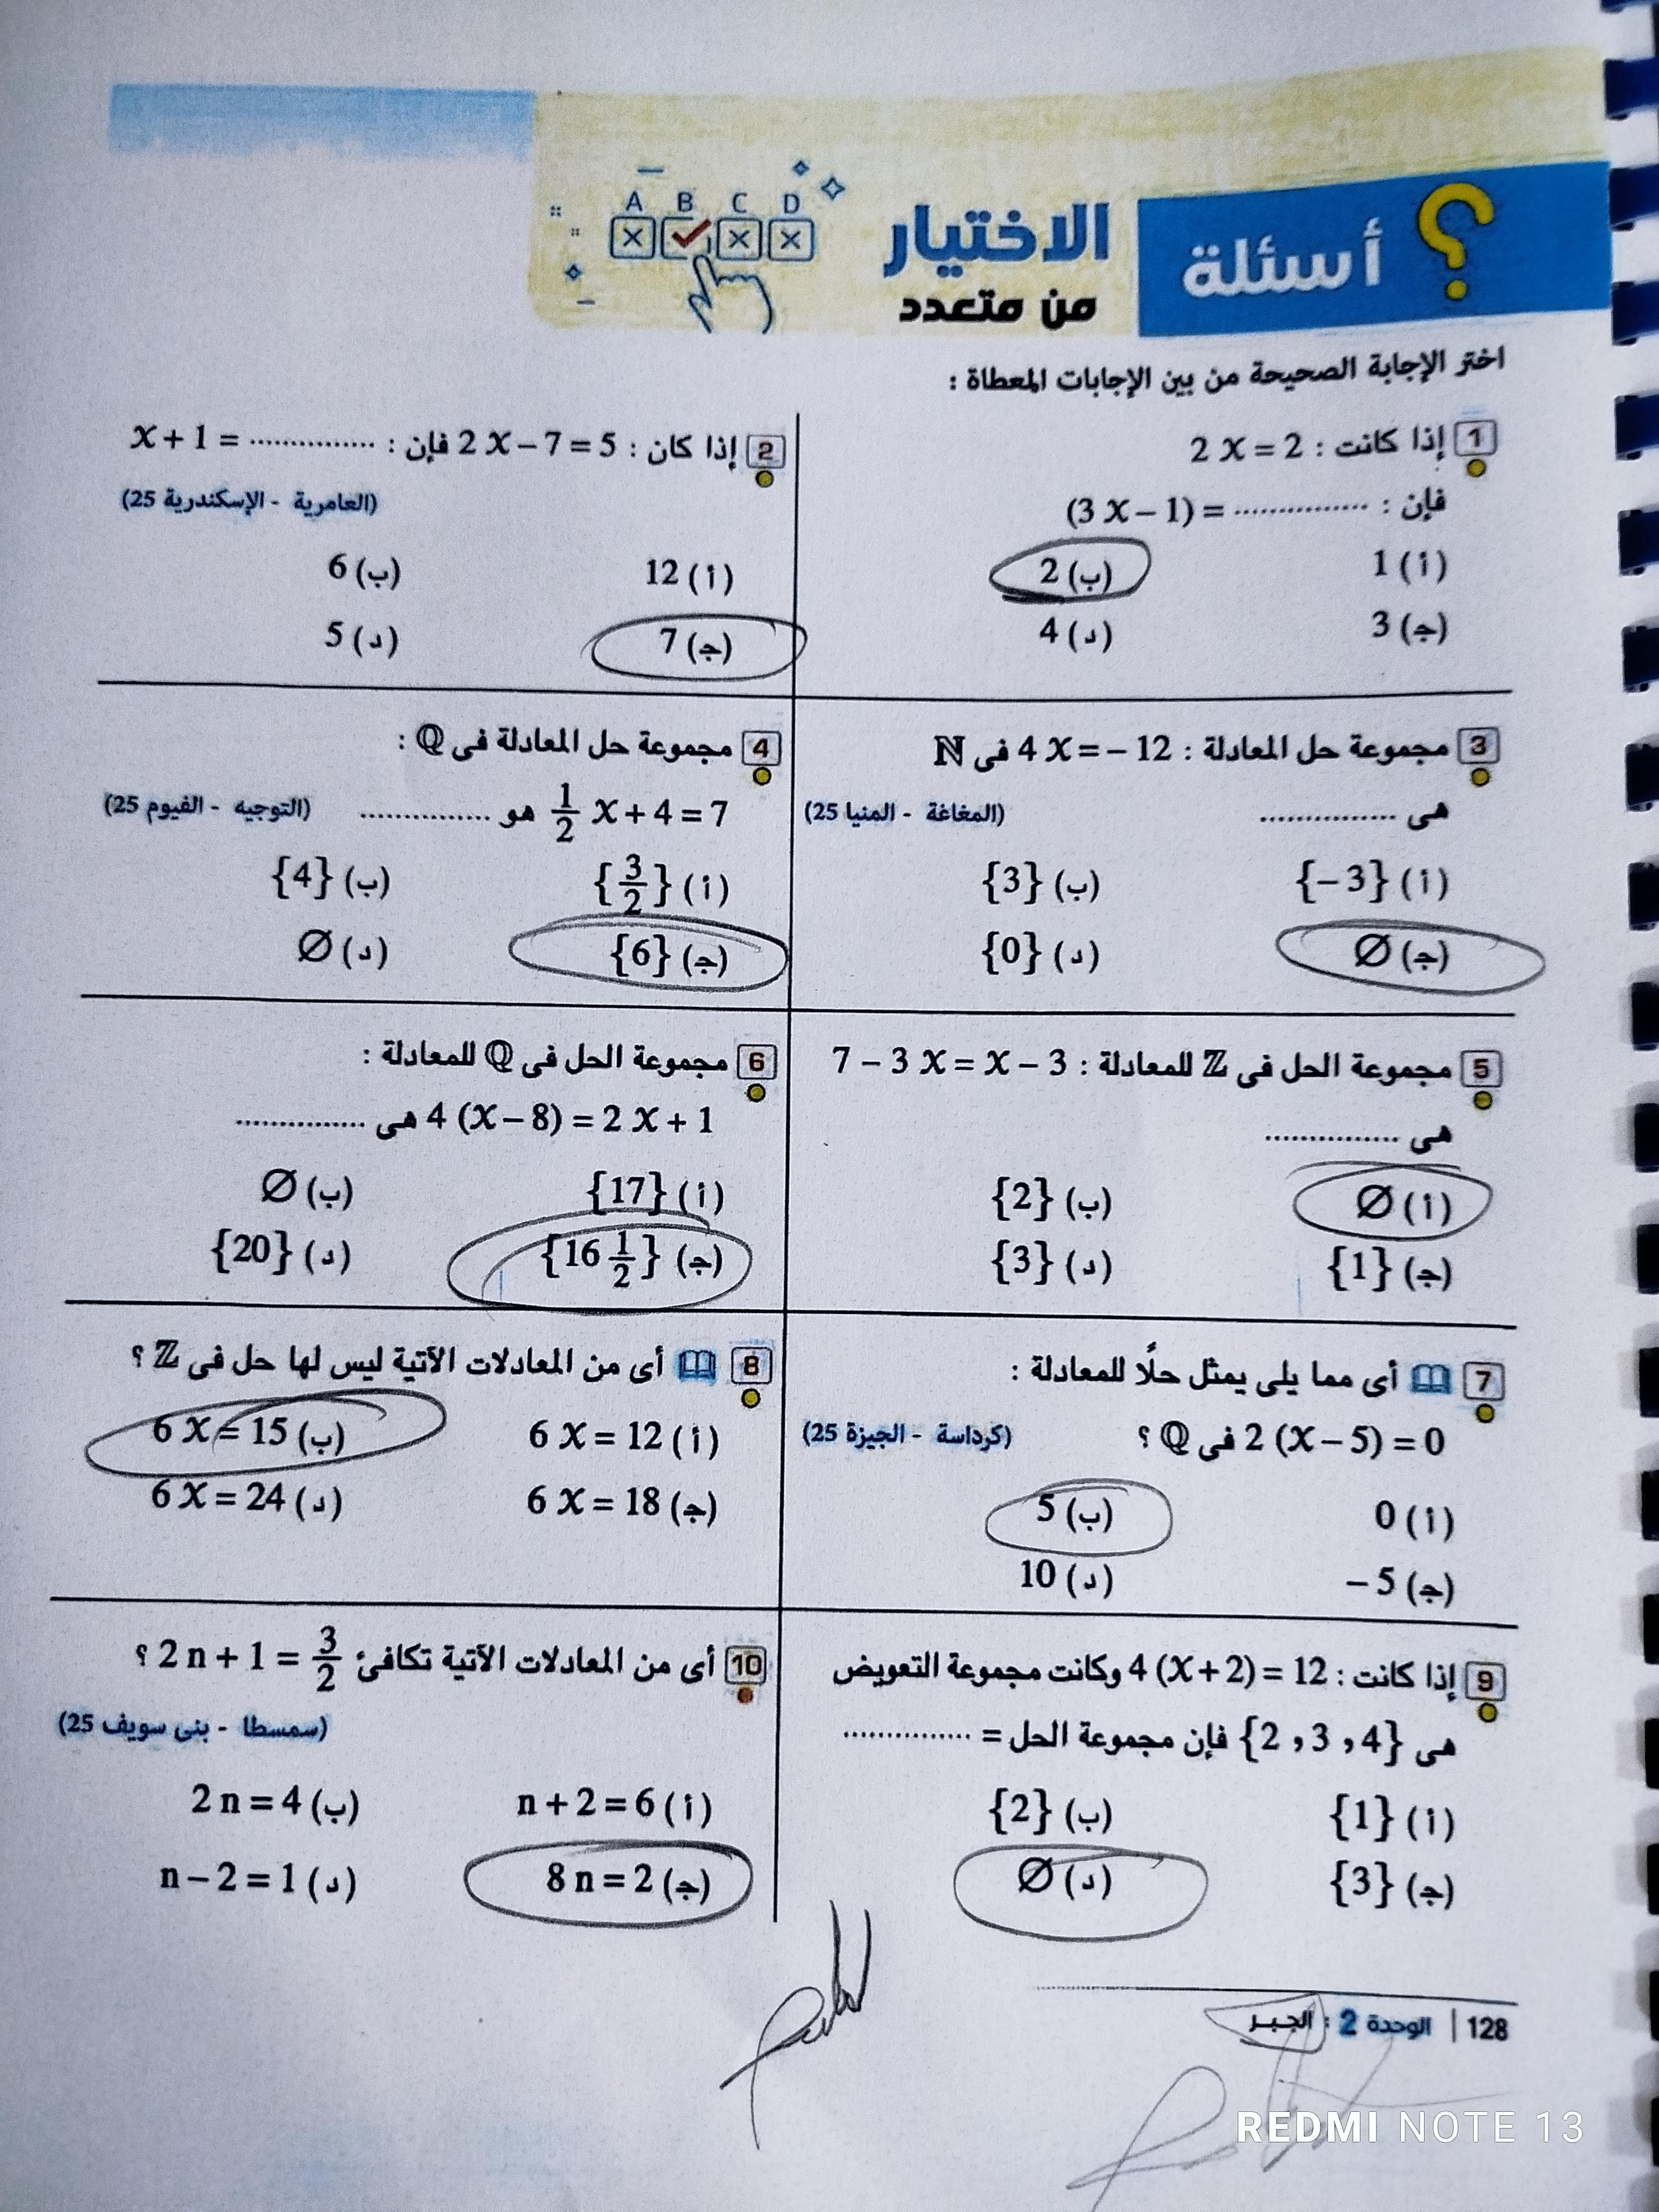 أسئلة
الاختيار
من متعدد
A B C D
اختر الإجابة الصحيحة من بين الإجابات المعطاة :
1 إذا كانت : 2 x = 2
فإن : ............... = (3 x – 1)
(أ) 1
(ب) 2
(جـ) 3
(د) 4
2 إذا كان : 2 x – 7 = 5 فإن : ............... = x + 1
(العامرية - الإسكندرية 25)
(أ) 12
(ب) 6
(جـ) 7
(د) 5
3 مجموعة حل المعادلة : 4 x = – 12 فى ℕ
هى ...............
(المغاغة - المنيا 25)
(أ) {– 3}
(ب) {3}
(جـ) ∅
(د) {0}
4 مجموعة حل المعادلة فى ℚ :
1/2 x + 4 = 7 هو ...............
(التوجيه - الفيوم 25)
(أ) {3/2}
(ب) {4}
(جـ) {6}
(د) ∅
5 مجموعة الحل فى ℤ للمعادلة : 7 – 3 x = x – 3
هى ...............
(أ) ∅
(ب) {2}
(جـ) {1}
(د) {3}
6 مجموعة الحل فى ℚ للمعادلة :
4 (x – 8) = 2 x + 1 هى ...............
(أ) {17}
(ب) ∅
(جـ) {16 1/2}
(د) {20}
7 أى مما يلى يمثل حلًا للمعادلة :
2 (x – 5) = 0 فى ℚ ؟
(كرداسة - الجيزة 25)
(أ) 0
(ب) 5
(جـ) – 5
(د) 10
8 أى من المعادلات الآتية ليس لها حل فى ℤ ؟
(أ) 6 x = 12
(ب) 6 x = 15
(جـ) 6 x = 18
(د) 6 x = 24
9 إذا كانت : 4 (x + 2) = 12 وكانت مجموعة التعويض
هى {2 , 3 , 4} فإن مجموعة الحل = ...............
(أ) {1}
(ب) {2}
(جـ) {3}
(د) ∅
10 أى من المعادلات الآتية تكافئ 2 n + 1 = 3/2 ؟
(سمسطا - بنى سويف 25)
(أ) n + 2 = 6
(ب) 2 n = 4
(جـ) 8 n = 2
(د) n – 2 = 1
128 | الوحدة 2 : الجبر
REDMI NOTE 13